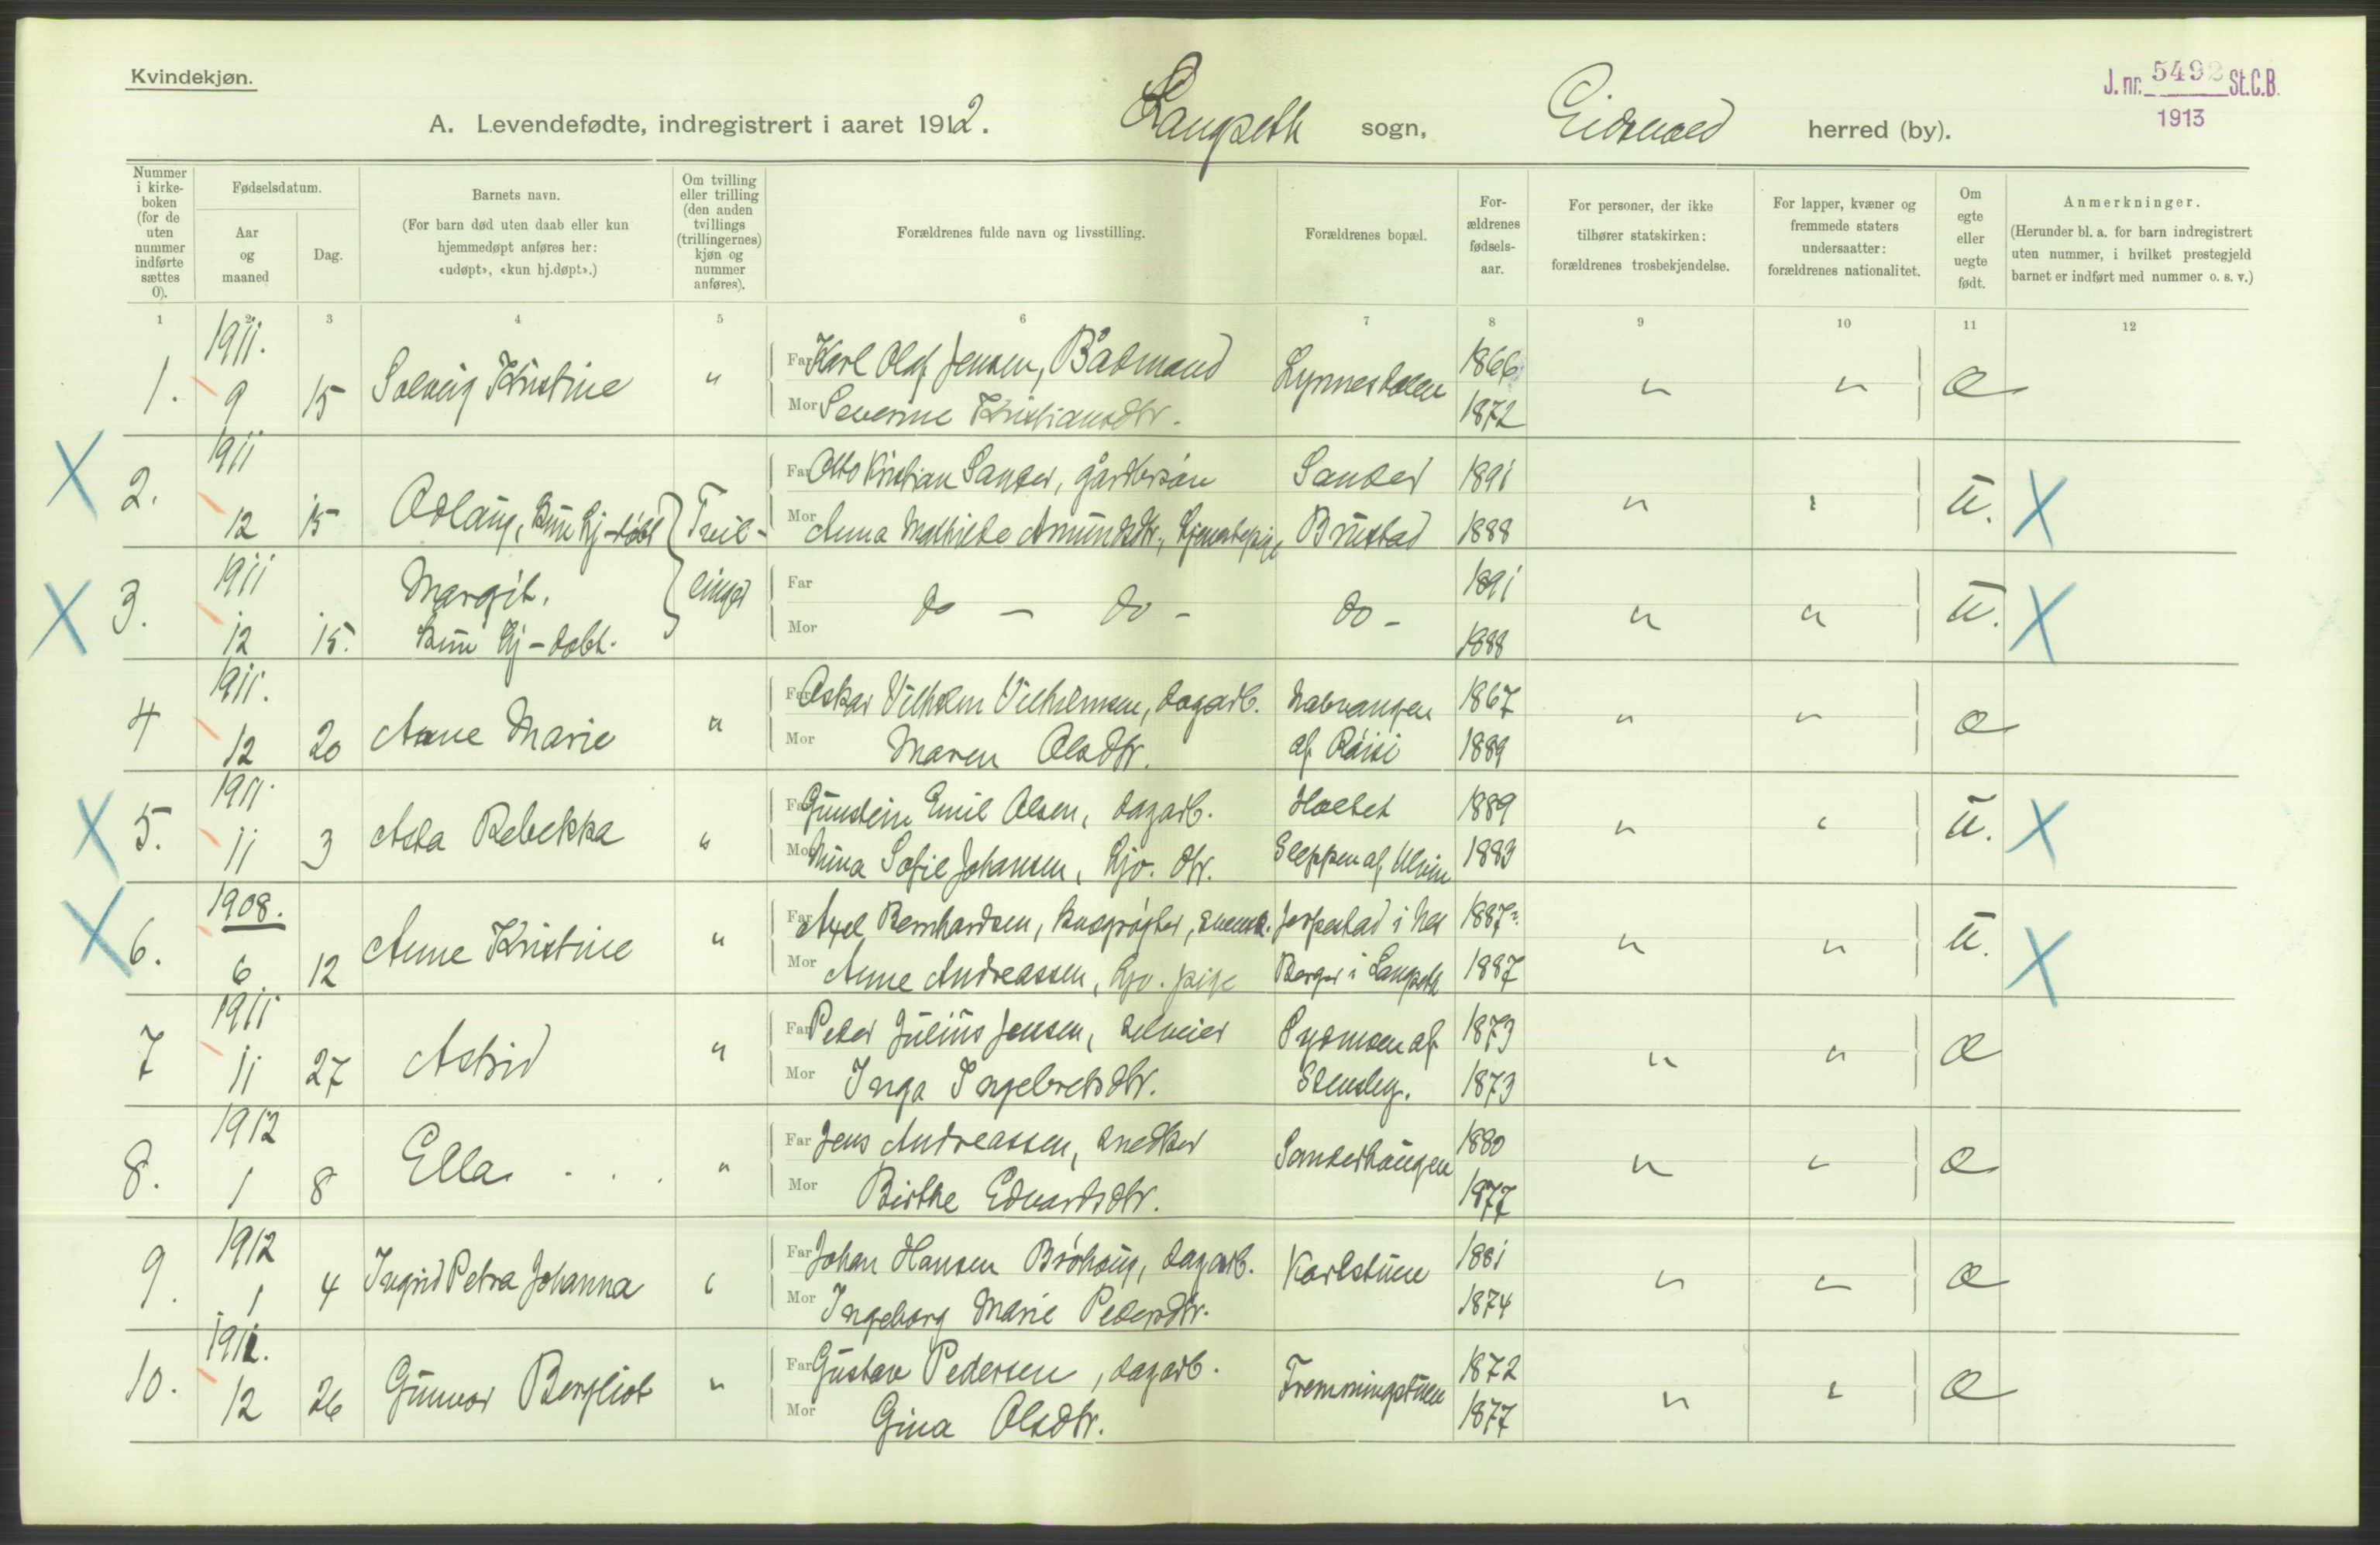 Kvindekjøn.
J. nr. 5492 St.C.B.
1913
A. Levendefødte, indregistrert i aaret 1912. Langseth sogn, Eidsvold herred (by).
Nummer i kirkeboken (for de uten nummer indførte sættes 0).
Fødselsdatum.
Aar og maaned
Dag.
Barnets navn.
(For barn død uten daab eller kun hjemmedøpt anføres her: «udøpt», «kun hj.døpt».)
Om tvilling eller trilling (den anden tvillings (trillingernes) kjøn og nummer anføres).
Forældrenes fulde navn og livsstilling.
Forældrenes bopæl.
Forældrenes fødselsaar.
For personer, der ikke tilhører statskirken: forældrenes trosbekjendelse.
For lapper, kvæner og fremmede staters undersaatter: forældrenes nationalitet.
Om egte eller uegte født.
Anmerkninger.
(Herunder bl. a. for barn indregistrert uten nummer, i hvilket prestegjeld barnet er indført med nummer o. s. v.)
1 2 3 4 5 6 7 8 9 10 11 12
1. 1911. 9 15 Solveig Kristine " Far Karl Olaf Jensen, Baadmand Lynnesdalen 1866 " " Æ
Mor Severine Kristiansdtr. 1872
2. 1911 12 15 Odlaug, kun hj-døbt Tvil- Far Otto Kristian Sander, gårdbrsøn Sander 1891 " " U.
Mor Anna Mathilde Amundsdtr., tjenestepige Brustad 1888
3. 1911 12 15. Margit. kun hj-døbt. linger Far do - do - do - 1891 " " U.
Mor 1888
4 1911. 12 20 Anne Marie " Far Oskar Vilhelm Vilhelmsen, dagarb. 1867 " " Æ
Mor Maren Olsdtr. af Råisi 1889
5. 1911. 11 3 Asta Rebekka " Far Gunstein Emil Olsen, dagarb. Holtet 1889 " " U.
Mor Mina Sofie Johansen, hjv. dtr. Sleppen af Ulvin 1883
6. 1908. 6 12 Anne Kristine " Far Axel Bernhardsen, kusgrøgter, svensk. Jerpestad i Nes 1887? " " U.
Mor Anne Andreassen, hjv. pige Berger i Langseth 1887
7 1911 11 27 Astrid " Far Peder Julius Jensen, selveier af 1873 " " Æ
Mor Inga Ingebretsdtr. Stensby. 1873
8. 1912 1 8 Ella " Far Jens Andreassen, snedker Sanderhaugen 1880 " " Æ
Mor Birthe Edvardsdtr. 1877
9. 1912 1 4 Ingrid Petra Johanna " Far Johan Hansen Bråhaug, dagarb. Karlstuen 1881 " " Æ
Mor Ingeborg Marie Pedersdtr. 1874
10. 1911. 12 26 Gunvor Bergliot " Far Gustav Pedersen, dagarb. Fremmingstuen 1872 " " Æ
Mor Gina Olsdtr. 1877